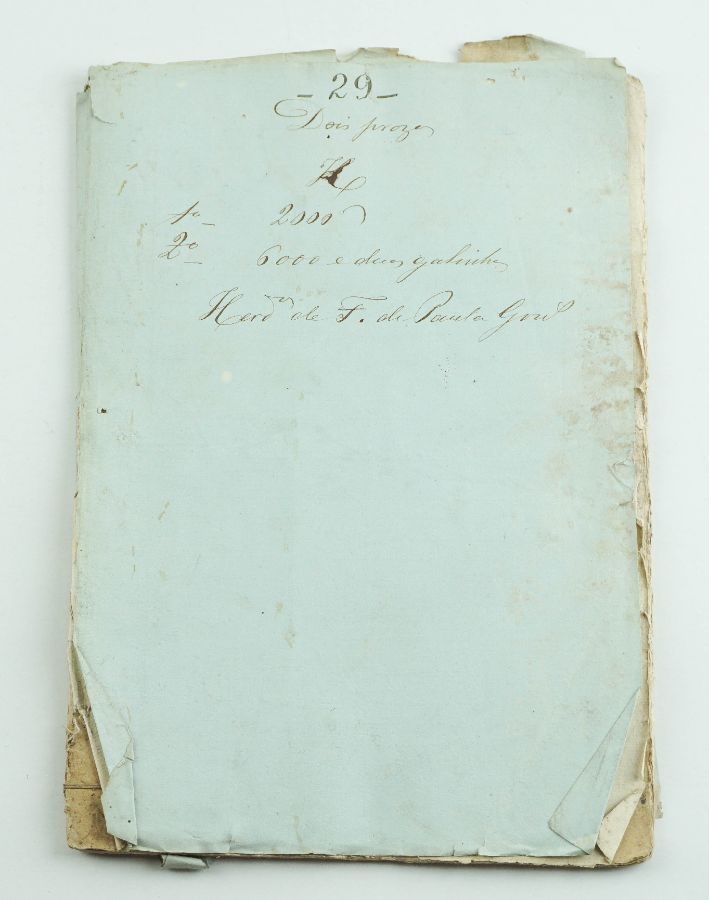 - 29 -
Dois prazos
1º 2000
2º 6000 e duas galinhas
Herdos de F. de Paula